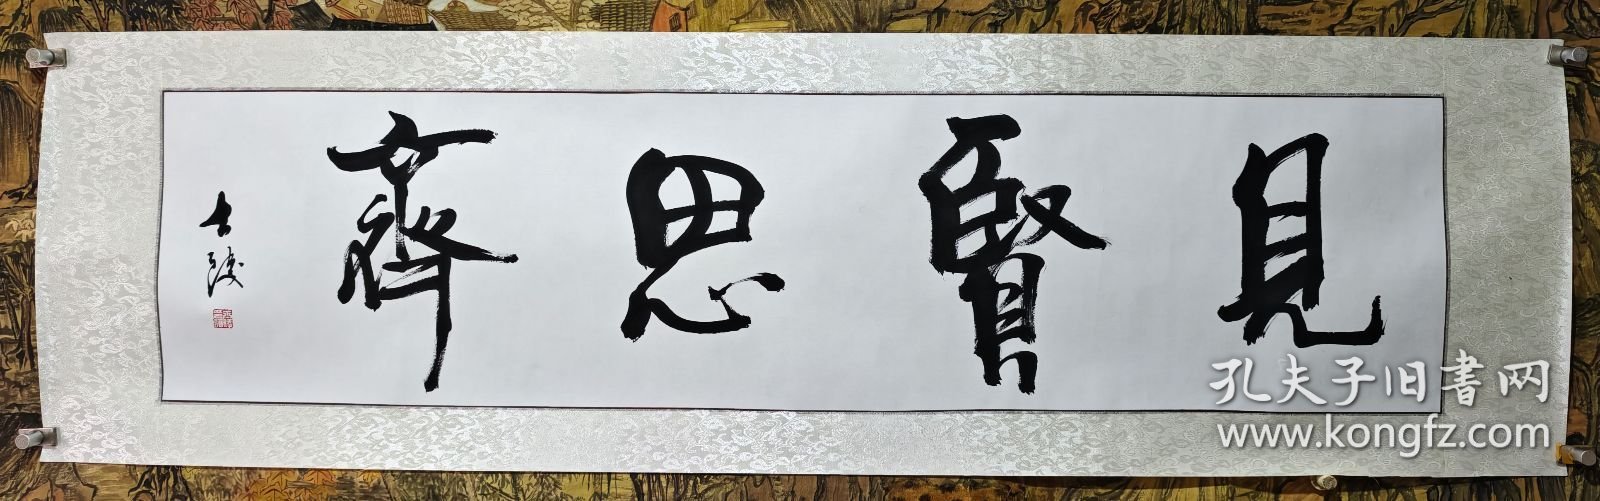 見賢思齊
孔夫子旧書网
www.kongfz.com